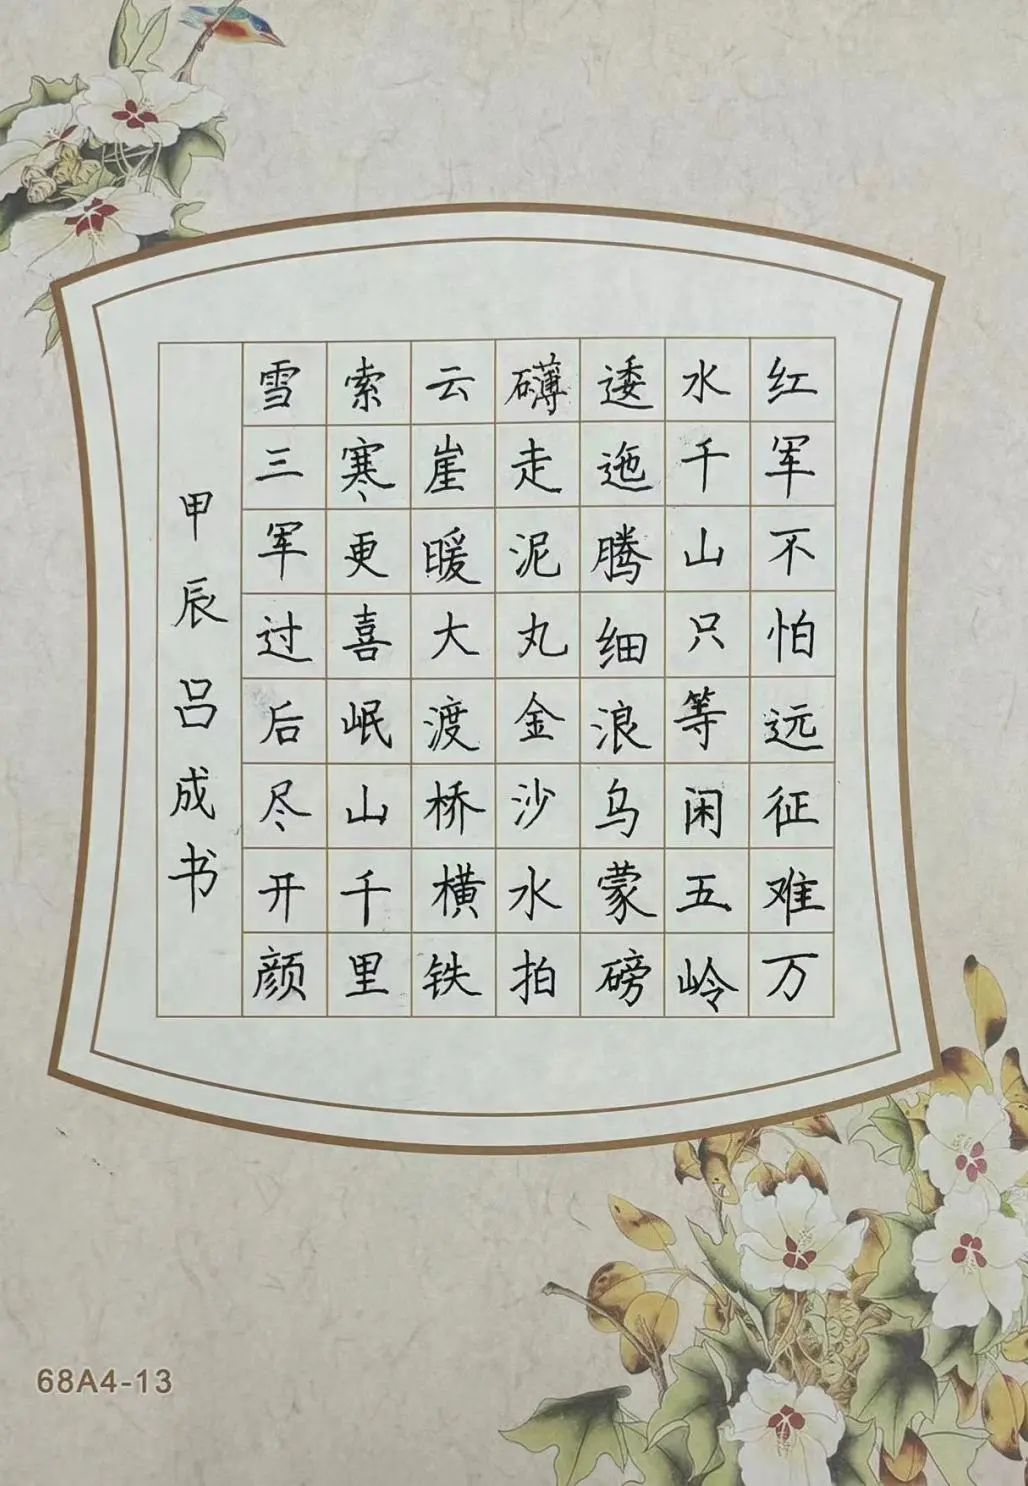 红军不怕远征难万
水千山只等闲五岭
逶迤腾细浪乌蒙磅
礴走泥丸金沙水拍
云崖暖大渡桥横铁
索寒更喜岷山千里
雪三军过后尽开颜
甲辰吕成书
68A4-13